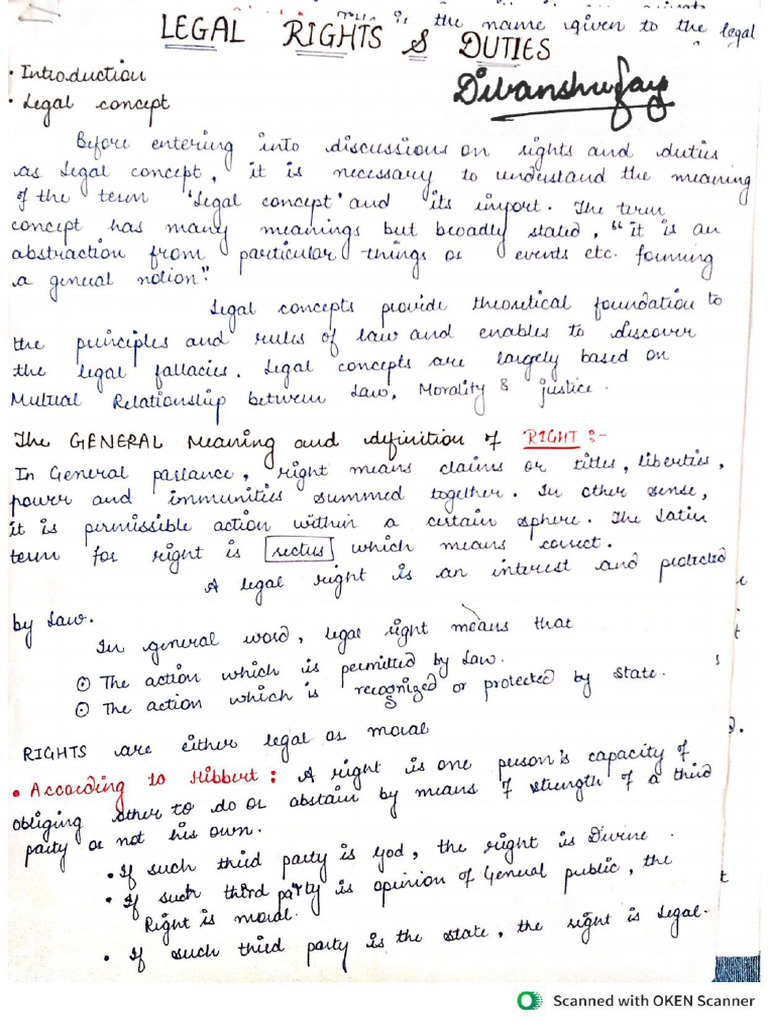 is the name given to the legal
LEGAL RIGHTS & DUTIES
• Introduction
• Legal concept
Before entering into discussions on rights and duties
as Legal concept, it is necessary to understand the meaning
of the term 'Legal concept' and its import. The term
concept has many meanings but broadly stated, "it is an
abstraction from particular things or events etc. forming
a general notion".
Legal concepts provide theoretical foundation to
the principles and rules of law and enables to discover
the legal fallacies. Legal concepts are largely based on
Mutual Relationship between Law, Morality & justice.
The GENERAL Meaning and definition of RIGHT :-
In General parlance, right means claims or titles, liberties,
power and immunities summed together. In other sense,
it is permissible action within a certain sphere. The Latin
term for right is rectus which means correct.
A legal right is an interest and protected
by Law.
In general word, legal right means that
⊙ The action which is permitted by Law.
⊙ The action which is recognized or protected by State.
RIGHTS are either legal or moral
• According to Hibbert : A right is one person's capacity of
obliging other to do or abstain by means of strength of a third
party or not his own.
• If such third party is God, the right is Divine.
• If such third party is opinion of General public, the
Right is moral.
• If such third party is the state, the right is Legal.
Scanned with OKEN Scanner